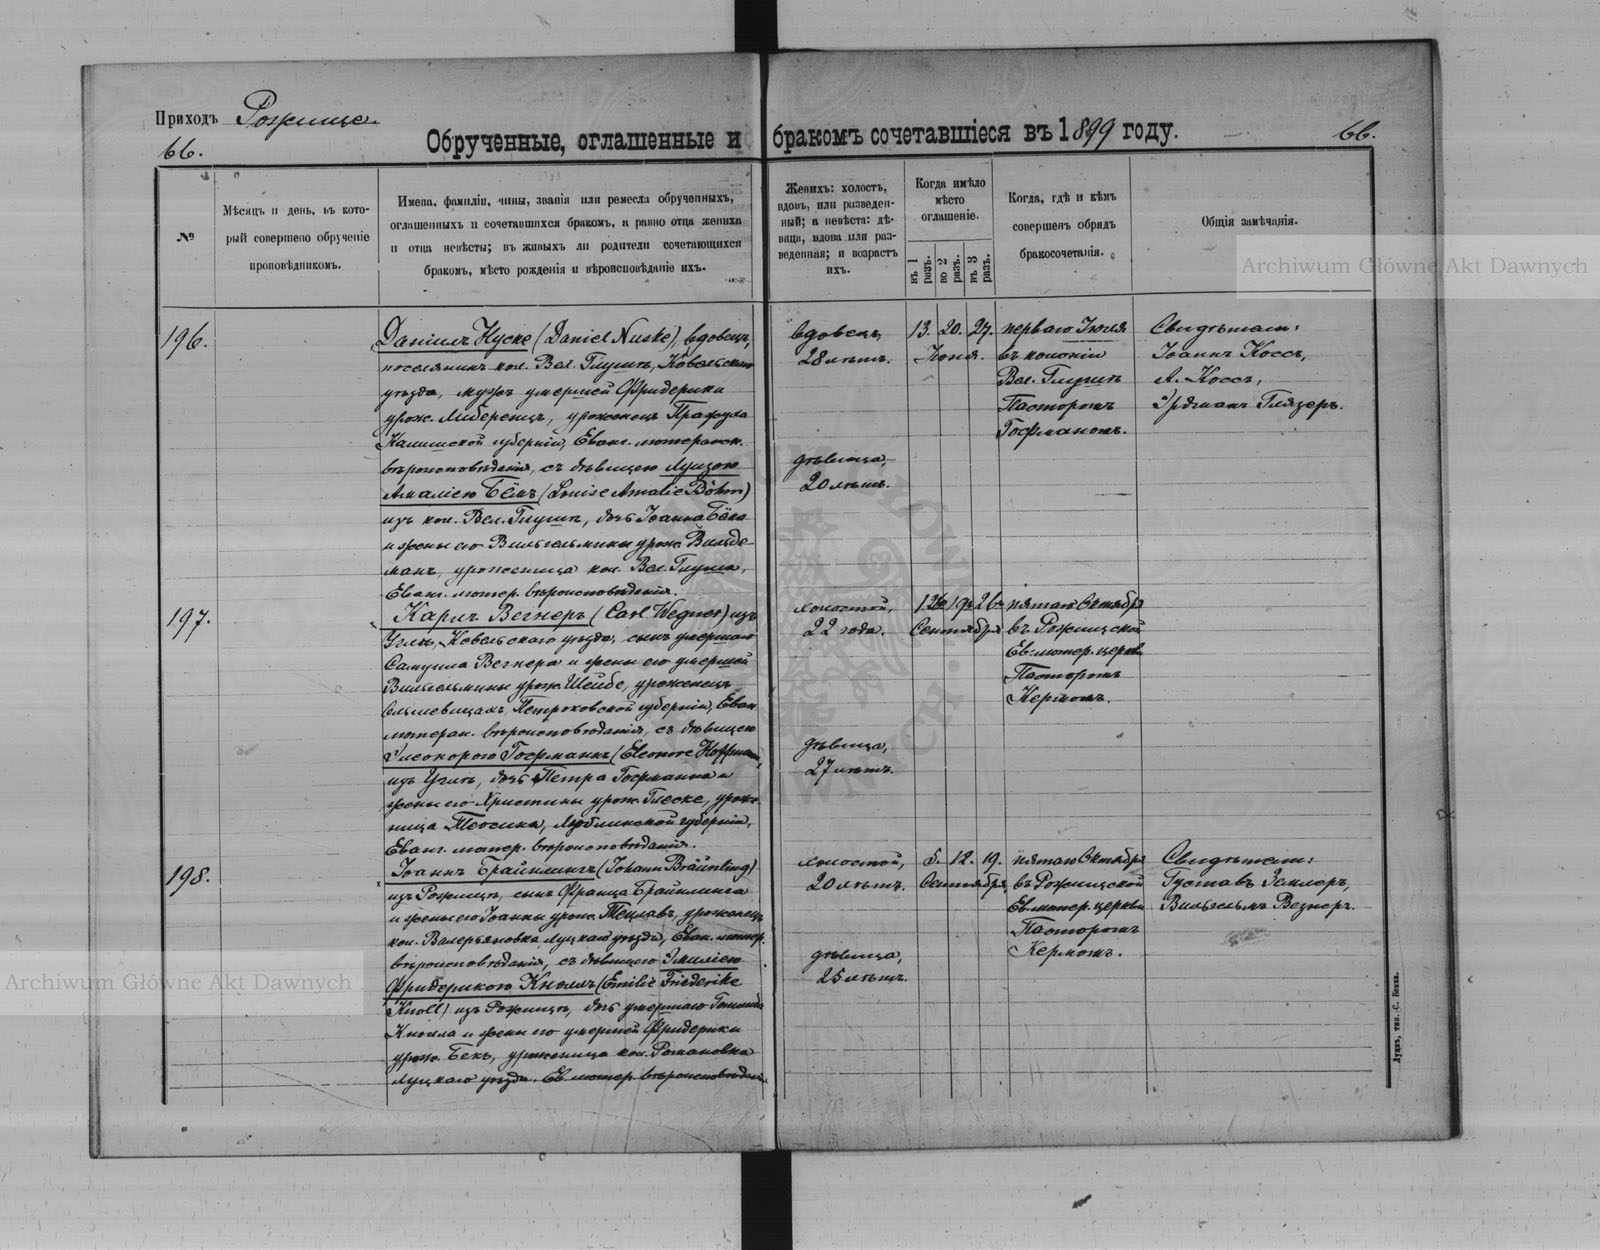 Приходъ Рожище
66.
Обрученные, оглашенные и бракомъ сочетавшіеся въ 1899 году.
66.
№
Мѣсяцъ и день, въ кото-
рый совершено обрученіе
проповѣдникомъ.
Имена, фамиліи, чины, званія или ремесла обрученныхъ,
оглашенныхъ и сочетавшихся бракомъ, а равно отца жениха
и отца невѣсты; въ живыхъ ли родители сочетающихся
бракомъ, мѣсто рожденія и вѣроисповѣданіе ихъ.
Женихъ: холостъ,
вдовъ, или разведен-
ный; а невѣста: дѣ-
вица, вдова или раз-
веденная; и возрастъ
ихъ.
Когда имѣло
мѣсто
оглашеніе.
въ 1 разъ.
во 2 разъ.
въ 3 разъ.
Когда, гдѣ и кѣмъ
совершенъ обрядъ
бракосочетанія.
Общія замѣчанія.
Archiwum Główne Akt Dawnych
196.
Даніилъ Нуске (Daniel Nuske), вдовецъ,
поселянинъ кол. Вел. Глушъ, Ковельскаго
уѣзда, мужъ умершей Фридерики
урож. уроженецъ
Калишской губерніи, Еванг. лютеранск.
вѣроисповѣданія, съ дѣвицею Луизою
Амаліею Бёмъ (Louise Amalie Böhm)
изъ кол. Вел. Глушъ, дочь Іоанна Бёма
и жены его Вильгельмины урож. Вильде-
манъ, уроженица кол. Вел. Глуша,
Еванг. лютер. вѣроисповѣданія.
вдовецъ,
28 лѣтъ.
дѣвица,
20 лѣтъ.
13. 20. 27.
Іюня.
перваго Іюля
въ колоніи
Вел. Глушъ
Пасторомъ
Гофманомъ.
Свидѣтели:
Іоаннъ Коссъ,
А. Коссъ,
Эрдманъ Глязеръ.
197.
Карлъ Вегнеръ (Carl Wegner) изъ
Угли, Ковельскаго уѣзда, сынъ умершаго
Самуила Вегнера и жены его умершей
Вильгельмины урож. Шейбе, уроженецъ
Петроковской губерніи, Еван.
лютеран. вѣроисповѣданія, съ дѣвицею
Элеонорою Гофманъ (Eleonore Hoffmann)
изъ Угли, дочь Петра Гофманна и
жены его Христины урож. Гиеске, уроже-
ница Люблинской губерніи,
Еванг. лютер. вѣроисповѣданія.
холостой,
22 года.
дѣвица,
27 лѣтъ.
12го 19го 26го
Сентября
пятаго Октября
въ Рожищской
Ев. лютер. церкви
Пасторомъ
Кермомъ.
198.
Іоаннъ Брайнлингъ (Johann Bräunling)
изъ Рожищъ, сынъ Франца Брайнлинга
и жены его Іоанны урож. Тецлавъ, уроженецъ
кол. Валерьяновка Луцкаго уѣзда, Еван. лютер.
вѣроисповѣданія, съ дѣвицею Эмиліею
Фридерикою Кнолль (Emilie Friederike
Knoll) изъ Рожищъ, дочь умершаго Готлиба
Кнолла и жены его умершей Фридерики
урож. Бекъ, уроженица кол. Романовка
Луцкаго уѣзда. Ев. лютер. вѣроисповѣданія
холостой,
20 лѣтъ.
дѣвица,
25 лѣтъ.
5. 12. 19.
Сентября
пятаго Октября
въ Рожищской
Ев. лютер. церкви
Пасторомъ
Кермомъ.
Свидѣтели:
Густавъ Землеръ,
Вильгельмъ Везнеръ.
Archiwum Główne Akt Dawnych
Луцкъ, тип. С. Бокка.